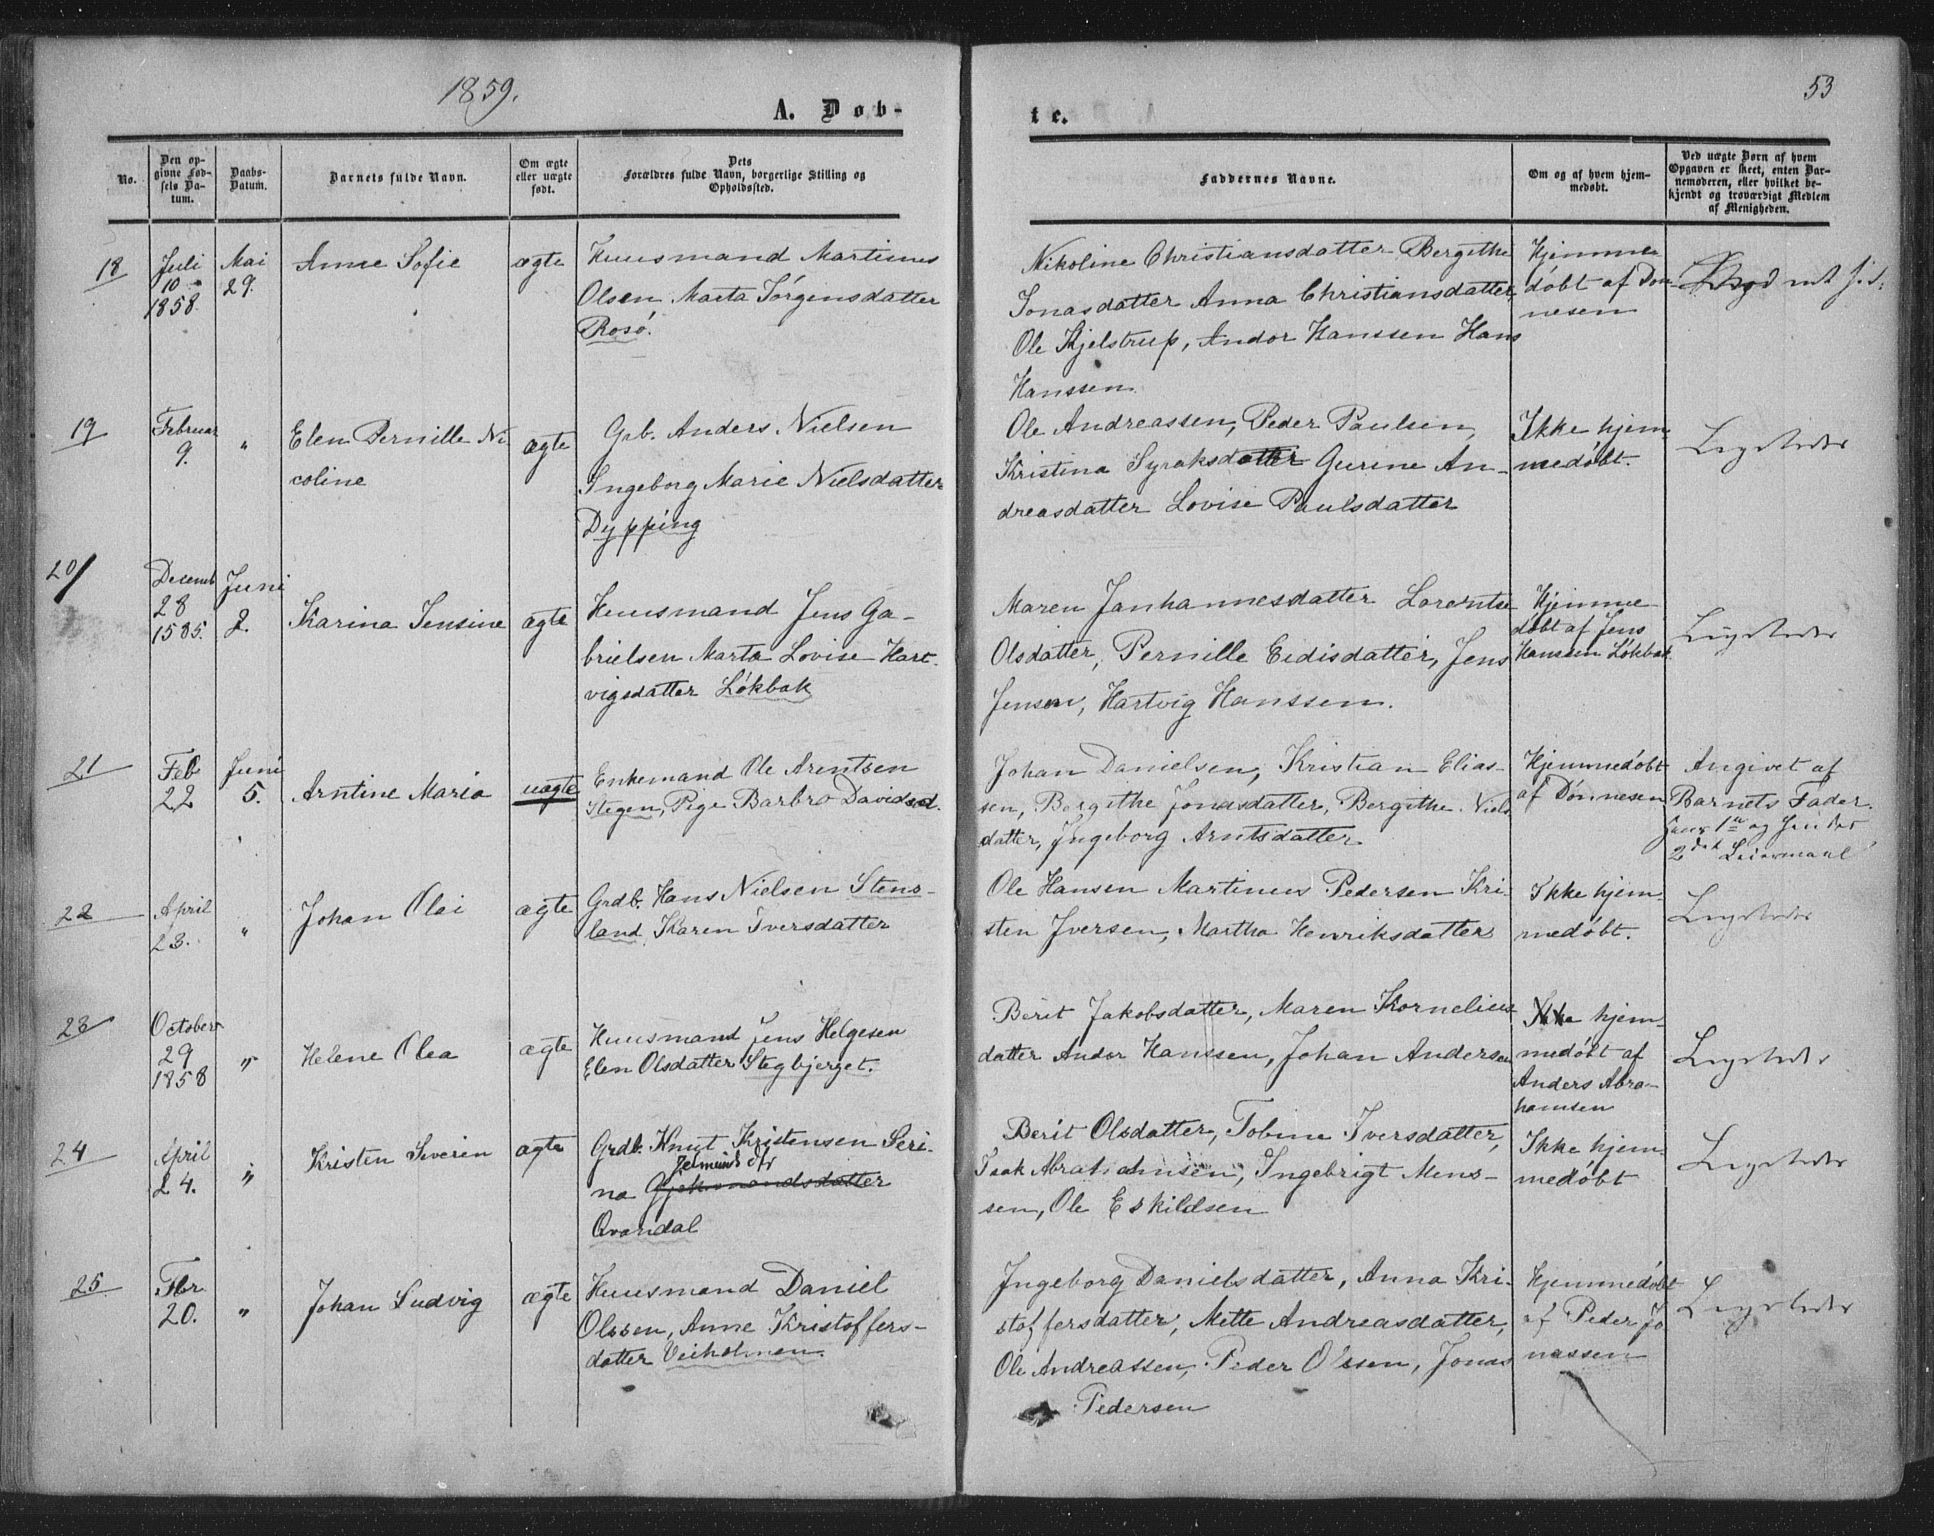 1859.
53
A. Døb-
te.
No.
Den op-
givne Fød-
sels Da-
tum.
Daabs-
Datum.
Barnets fulde Navn.
Om ægte
eller uægte
født.
Dets
Forældres fulde Navn, borgerlige Stilling og
Opholdssted.
Faddernes Navne.
Om og af hvem hjem-
medøbt.
Ved uægte Børn af hvem
Opgaven er skeet, enten Bar-
nemoderen, eller hvilket be-
kjendt og troværdigt Medlem
af Menigheden.
18
Juli
10
1858.
Mai
29.
Anne Sofie
ægte
Huusmand Martinus
Olsen Marta Jørgensdatter
Rosø.
Nikoline Christiansdatter Bergithe
Jonasdatter Anna Christiansdatter,
Ole Kjelstrup, Andor Hanssen Hans
Hanssen.
Hjemme
døbt af Døn-
nesen
19
Februar
9.
"
Elen Pernille Ni
coline
ægte
Grb. Anders Nielsen
Ingeborg Marie Nielsdatter
Dypping
Ole Andreassen, Peder Paulsen,
Kristina Syraksdatter Gurine An-
dreasdatter Lovise Paulsdatter
Ikke hjem
medøbt.
Ligeledes
20/
Desemb
28
1585.
Juni
2.
Karina Jensine
ægte
Huusmand Jens Ga-
brielsen Marta Lovise Hart-
vigsdatter Løkbak
Maren Janhannesdatter Lorentse
Olsdatter, Pernille Eidisdatter, Jens
Jensen, Hartvig Hanssen.
Hjemme
døbt af Jens
Hanssen Løkbak
Ligeledes
21
Feb
22
Juni
5.
Arntine Maria
uægte
Enkemand Ole Arentsen
Stegen, Pige Barbro Davidsd.
Johan Danielsen, Kristian Elias-
sen, Bergithe Jonasdatter, Bergithe Niels
datter, Ingeborg Arntsdatter
Hjemmedøbt
af Dønnesen
Angivet af
Barnets Fader.
Hans 1ste og hendes
2det Leiermaal
22
April
23.
"
Johan Olai
ægte
Grdb. Hans Nielsen Stens-
land Karen Iversdatter
Ole Hansen Martinus Pedersen Kri-
sten Iversen, Martha Henriksdatter
Ikke hjem-
medøbt.
Ligeledes
23
October
29
1858
"
Helene Olea
ægte
Huusmand Jens Helgesen
Elen Olsdatter Stegbjerget.
Berit Jakobsdatter, Maren Kornelius
datter Andor Hanssen, Johan Andersen
Ikke hjem-
medøbt af
Anders Abra-
hamsen
Ligeledes
24
April
24.
"
Kristen Severin
ægte
Grdb. Knut Kristensen Seri-
na
Qvandal
Berit Olsdatter, Tobine Iversdatter,
Isak Abrahamsen, Ingebrigt Mons-
sen, Ole Eskildsen
Ikke hjem
medøbt
Ligeledes
25
Fbr
20.
"
Johan Ludvig
ægte
Huusmand Daniel
Olssen, Anne Kristoffers-
datter Veiholmen.
Ingeborg Danielsdatter, Anna Kri-
stoffersdatter, Mette Andreasdatter,
Ole Andreassen, Peder Olssen, Jonas
Pedersen
Hjemmedøbt
af Peder Jo
nassen
Ligeledes